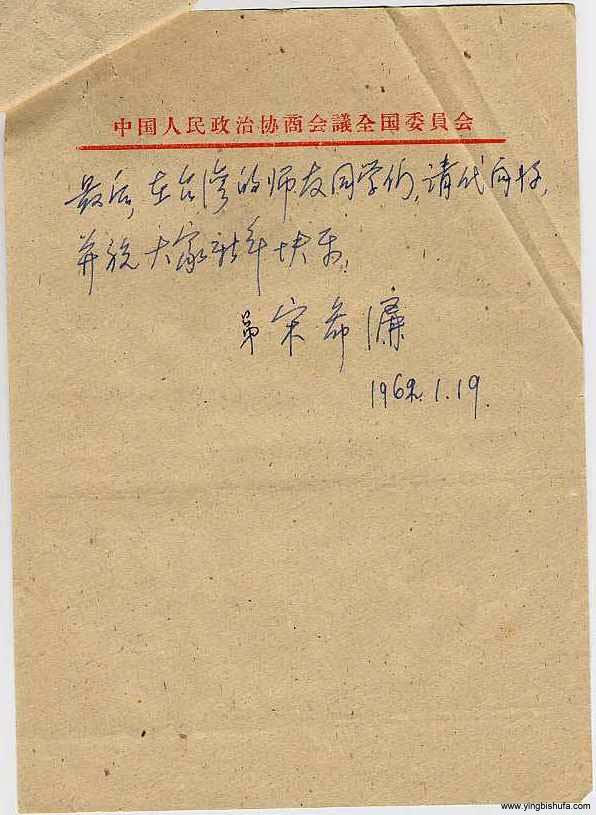 中国人民政治协商会議全国委員会
最后，在台湾的师友同学们，请代问好，
并祝大家新年快乐！
弟宋希濂
1962.1.19.
www.yingbishufa.com